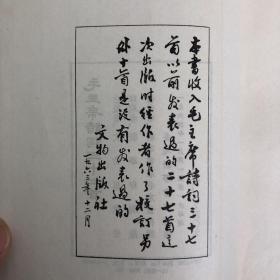 本書收入毛主席詩詞三十七
首以前发表过的二十七首這
次出版时经作者作了校訂另
外十首是没有发表过的
文物出版社
一九六三年十二月